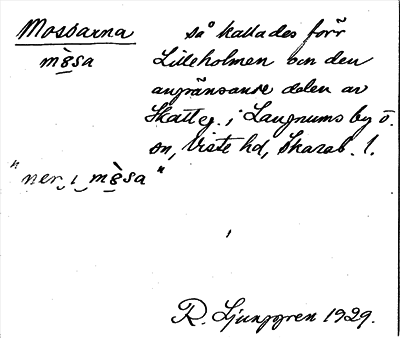 Mossarna
mòsa
så kallades förr
Lilleholmen och den
angränsande delen av
Skatteg. i Laugnums by ö.
on, Viste hd, Skarab. l.
"ner i mòsa"
R. Ljunggren 1929.